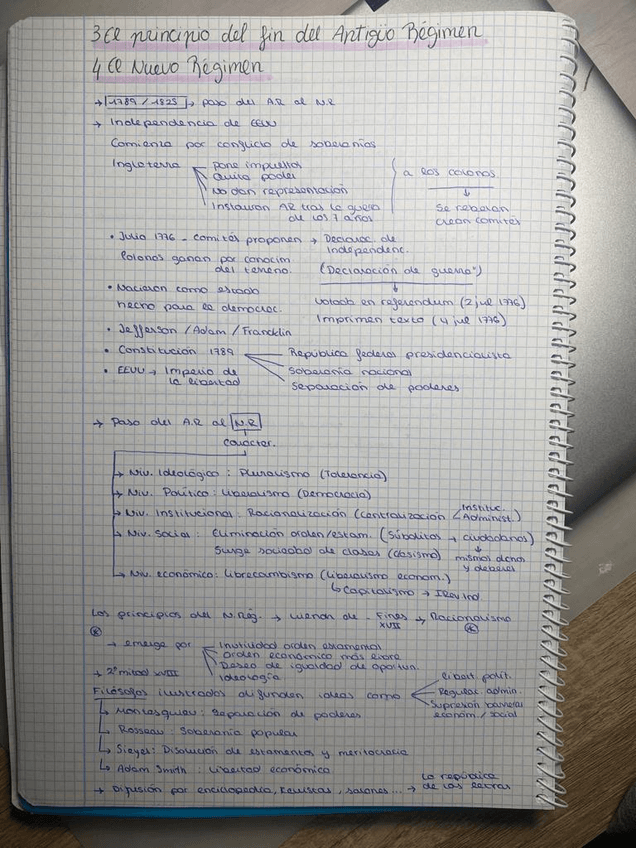 3 El principio del fin del Antigüo Régimen
4 El Nuevo Régimen
→ 1789 / 1825 → paso del A.R al N.R
→ Independencia de EEUU
Comienza por conflicto de soberanías
Inglaterra
pone impuestos
Quita poder
No dan representación
Instauran AR tras la guerra
de los 7 años
a los colonos
Se rebelan
crean comités
• Julio 1776 - comités proponen → Declarac de
Independenc.
Colonos ganan por conocim
del terreno.
(Declaración de guerra")
• Nacieron como estado
hecho para la democrac.
Votada en referendum (2 jul 1776)
Imprimen texto (4 jul 1776)
• Jefferson / Adam / Francklin
• Constitución 1789
República federal presidencialista
Soberanía nacional
Separación de poderes
• EEUU → Imperio de
la libertad
→ Paso del A.R al N.R
caracter.
→ Niv. Ideológico : Pluralismo (Tolerancia)
→ Niv. Político : Liberalismo (Democracia)
→ Niv. Institucional : Racionalización (centralización
Instituc.
Administ.)
→ Niv. Social : Eliminación orden/estam. (Súbditos → ciudadanos)
Surge sociedad de clases (clasismo)
mismos derechos
y deberes
→ Niv. económico : Librecambismo (liberalismo econom.)
↳ Capitalismo → I Rev Ind
Los principios del N.Rég. → vienen de - Fines → Racionalismo
XVII
→ emerge por
Inutilidad orden estamental
Orden económico más libre
Deseo de igualdad de oportun.
Ideología
→ 2ª mitad XVIII
Filósofos ilustrados difunden ideas como
libert. polít.
Regular admin.
Supresión barreras
económ. / social
↳ Montesquieu : Separación de poderes
↳ Rosseau : Soberanía popular
↳ Sieyes : Disolución de estamentos y meritocracia
↳ Adam Smith : Libertad económica
→ Difusión por enciclopedia, Revistas, salones... → La república
de las letras